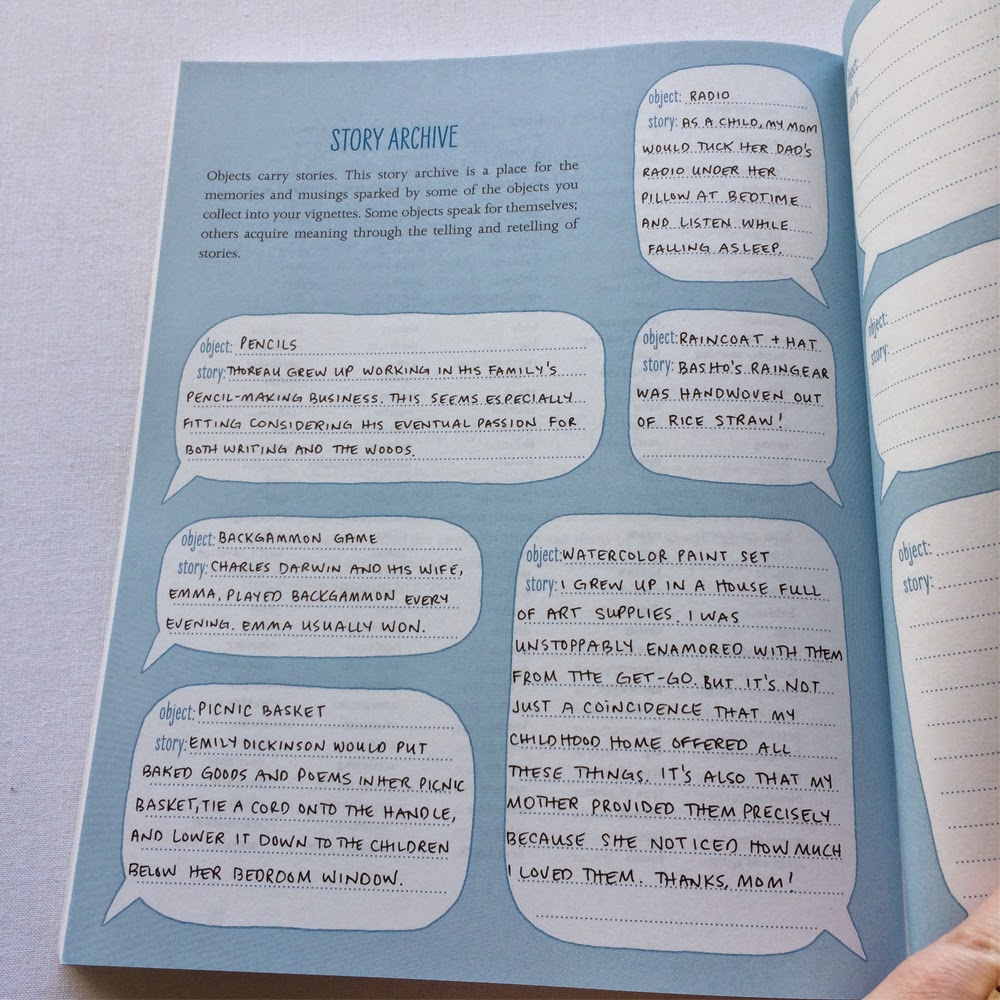 STORY ARCHIVE
Objects carry stories. This story archive is a place for the
memories and musings sparked by some of the objects you
collect into your vignettes. Some objects speak for themselves;
others acquire meaning through the telling and retelling of
stories.
object: RADIO
story: AS A CHILD, MY MOM
WOULD TUCK HER DAD'S
RADIO UNDER HER
PILLOW AT BEDTIME
AND LISTEN WHILE
FALLING ASLEEP.
object: PENCILS
story: THOREAU GREW UP WORKING IN HIS FAMILY'S
PENCIL-MAKING BUSINESS. THIS SEEMS ESPECIALLY
FITTING CONSIDERING HIS EVENTUAL PASSION FOR
BOTH WRITING AND THE WOODS.
object: RAINCOAT + HAT
story: BASHO'S RAINGEAR
WAS HANDWOVEN OUT
OF RICE STRAW!
object: BACKGAMMON GAME
story: CHARLES DARWIN AND HIS WIFE,
EMMA, PLAYED BACKGAMMON EVERY
EVENING. EMMA USUALLY WON.
object: WATERCOLOR PAINT SET
story: I GREW UP IN A HOUSE FULL
OF ART SUPPLIES. I WAS
UNSTOPPABLY ENAMORED WITH THEM
FROM THE GET-GO. BUT IT'S NOT
JUST A COINCIDENCE THAT MY
CHILDHOOD HOME OFFERED ALL
THESE THINGS. IT'S ALSO THAT MY
MOTHER PROVIDED THEM PRECISELY
BECAUSE SHE NOTICED HOW MUCH
I LOVED THEM. THANKS, MOM!
object: PICNIC BASKET
story: EMILY DICKINSON WOULD PUT
BAKED GOODS AND POEMS IN HER PICNIC
BASKET, TIE A CORD ONTO THE HANDLE,
AND LOWER IT DOWN TO THE CHILDREN
BELOW HER BEDROOM WINDOW.
object:
story:
object:
story:
object:
story: